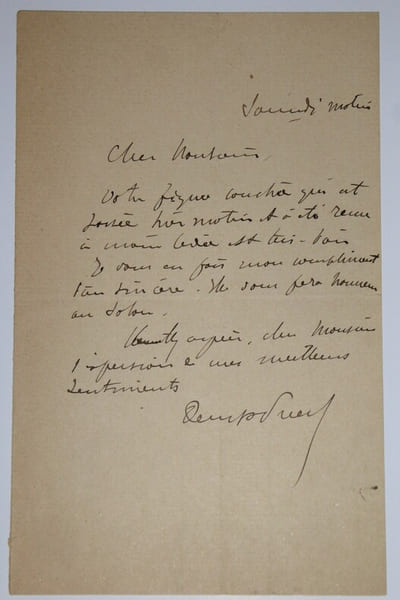 Samedi matin
Cher Monsieur,
Votre figure couchée qui est
hier matin et a été
à est très-bien
Je vous en fais mon compliment
sincère. Elle vous fera honneur
au Salon.
Veuillez agréer, cher Monsieur
l'expression de mes meilleurs
sentiments